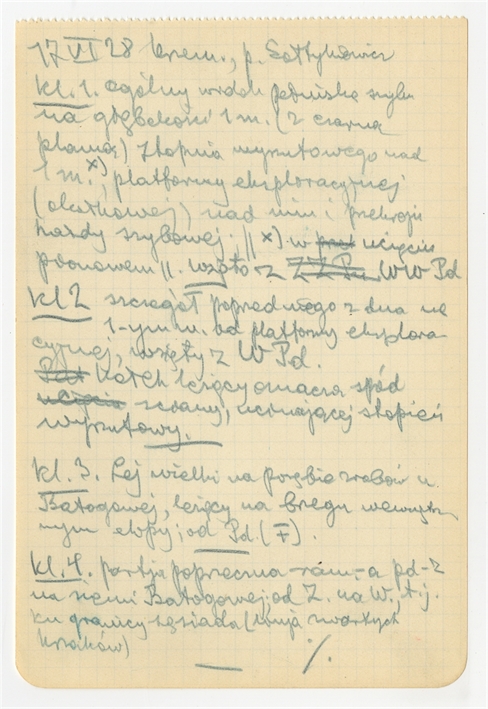 17 VI 28 krzem., p. Sołtykowicz
kl. 1. ogólny widok pełniska szybu
na głębokości 1 m. (z czarną
plamą) stopnia wyrzutowego nad
1 m. x) platformy eksploracyjnej
(okołkowej) nad nim i przekroju
hałdy szybowej. || x) w ucięciu
pionowem ||. wzięto z WW Pd
kl 2 szczegół poprzedniego z dna na
1-ym m. od platformy eksplora
cyjnej, wzięty z W Pd.
kołek leżący oznacza spód
ściany, ucinającej stopień
wyrzutowy.
kl. 3. Lej wielki na porębie zrębów u
Batogowej, leżący na brzegu wewnętrz
nym elipsy; od Pd. (F).
kl. 4. partja poprzeczna a pd-z
na ziemi Batogowej; od Z. na W., t. j.
ku granicy sąsiada (linja zwartych
krzaków)
./.